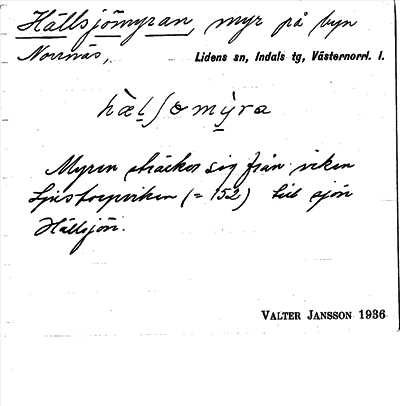 Hällsjömyran, myr på byn
Norrnäs, Lidens sn, Indals tg, Västernorrl. l.
hæ̀l̠ʃomỳ̠ra
Myren sträcker sig från viken
Ljustorpviken (= 152) till sjön
Hällsjön.
VALTER JANSSON 1936